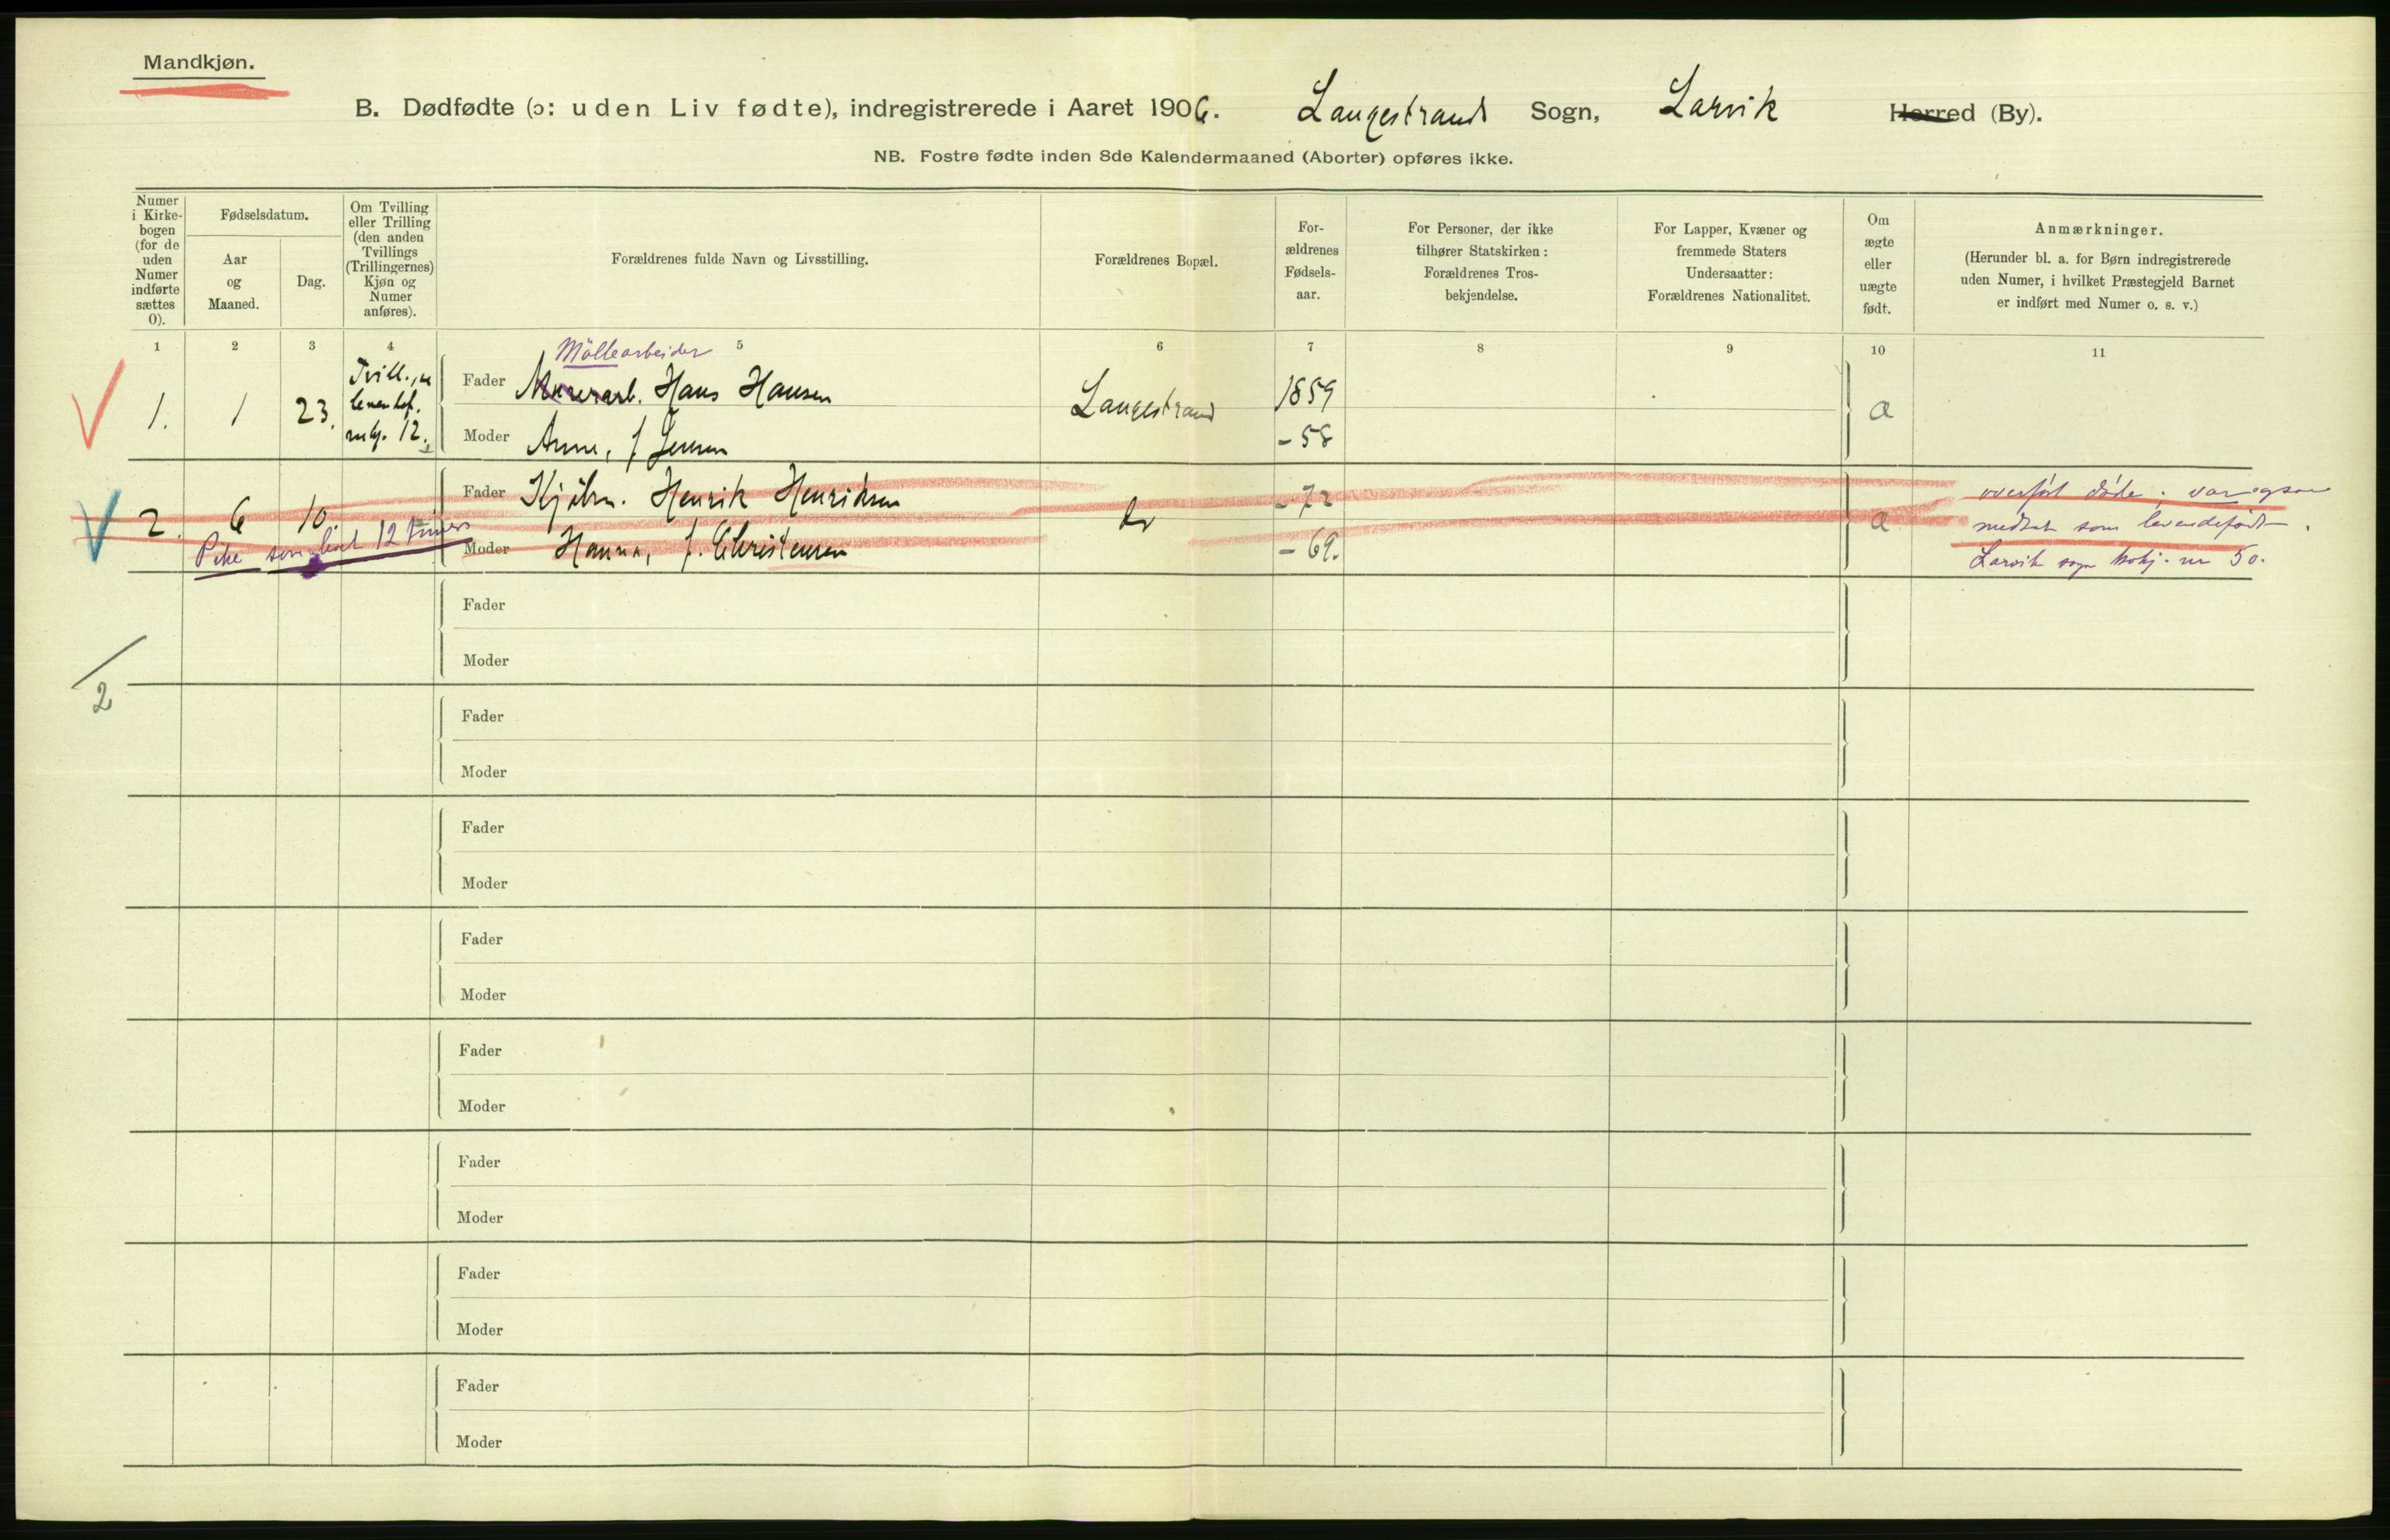 Mandkjøn.
B. Dødfødte (ɔ: uden Liv fødte), indregistrerede i Aaret 1906. Langestrand Sogn, Larvik Herred (By).
NB. Fostre fødte inden 8de Kalendermaaned (Aborter) opføres ikke.
Numer
i Kirke-
bogen
(for de
uden
Numer
indførte
sættes
0).
Fødselsdatum.
Aar
og
Maaned.
Dag.
Om Tvilling
eller Trilling
(den anden
Tvillings
(Trillingernes)
Kjøn og
Numer
anføres).
Forældrenes fulde Navn og Livsstilling.
Forældrenes Bopæl.
For-
ældrenes
Fødsels-
aar.
For Personer, der ikke
tilhører Statskirken:
Forældrenes Tros-
bekjendelse.
For Lapper, Kvæner og
fremmede Staters
Undersaatter:
Forældrenes Nationalitet.
Om
ægte
eller
uægte
født.
Anmærkninger.
(Herunder bl. a. for Børn indregistrerede
uden Numer, i hvilket Præstegjeld Barnet
er indført med Numer o. s. v.)
1 2 3 4 5 6 7 8 9 10 11
Møllearbeider
1. 1 23. Tvill.,
12.
Fader Murerarb. Hans Hansen Langestrand 1859 a
Moder Anne, f. Jensen - 58
2. 6 10. Fader Kjøbm. Henrik Henriksen do - 72 a overført døde; var ogsaa
medtat som levendefødt.
Pike som levet 12 timer
Moder Hanna, f. Christensen - 69. Larvik sogn kbkj. nr 50.
Fader
Moder
2
Fader
Moder
Fader
Moder
Fader
Moder
Fader
Moder
Fader
Moder
Fader
Moder
Fader
Moder